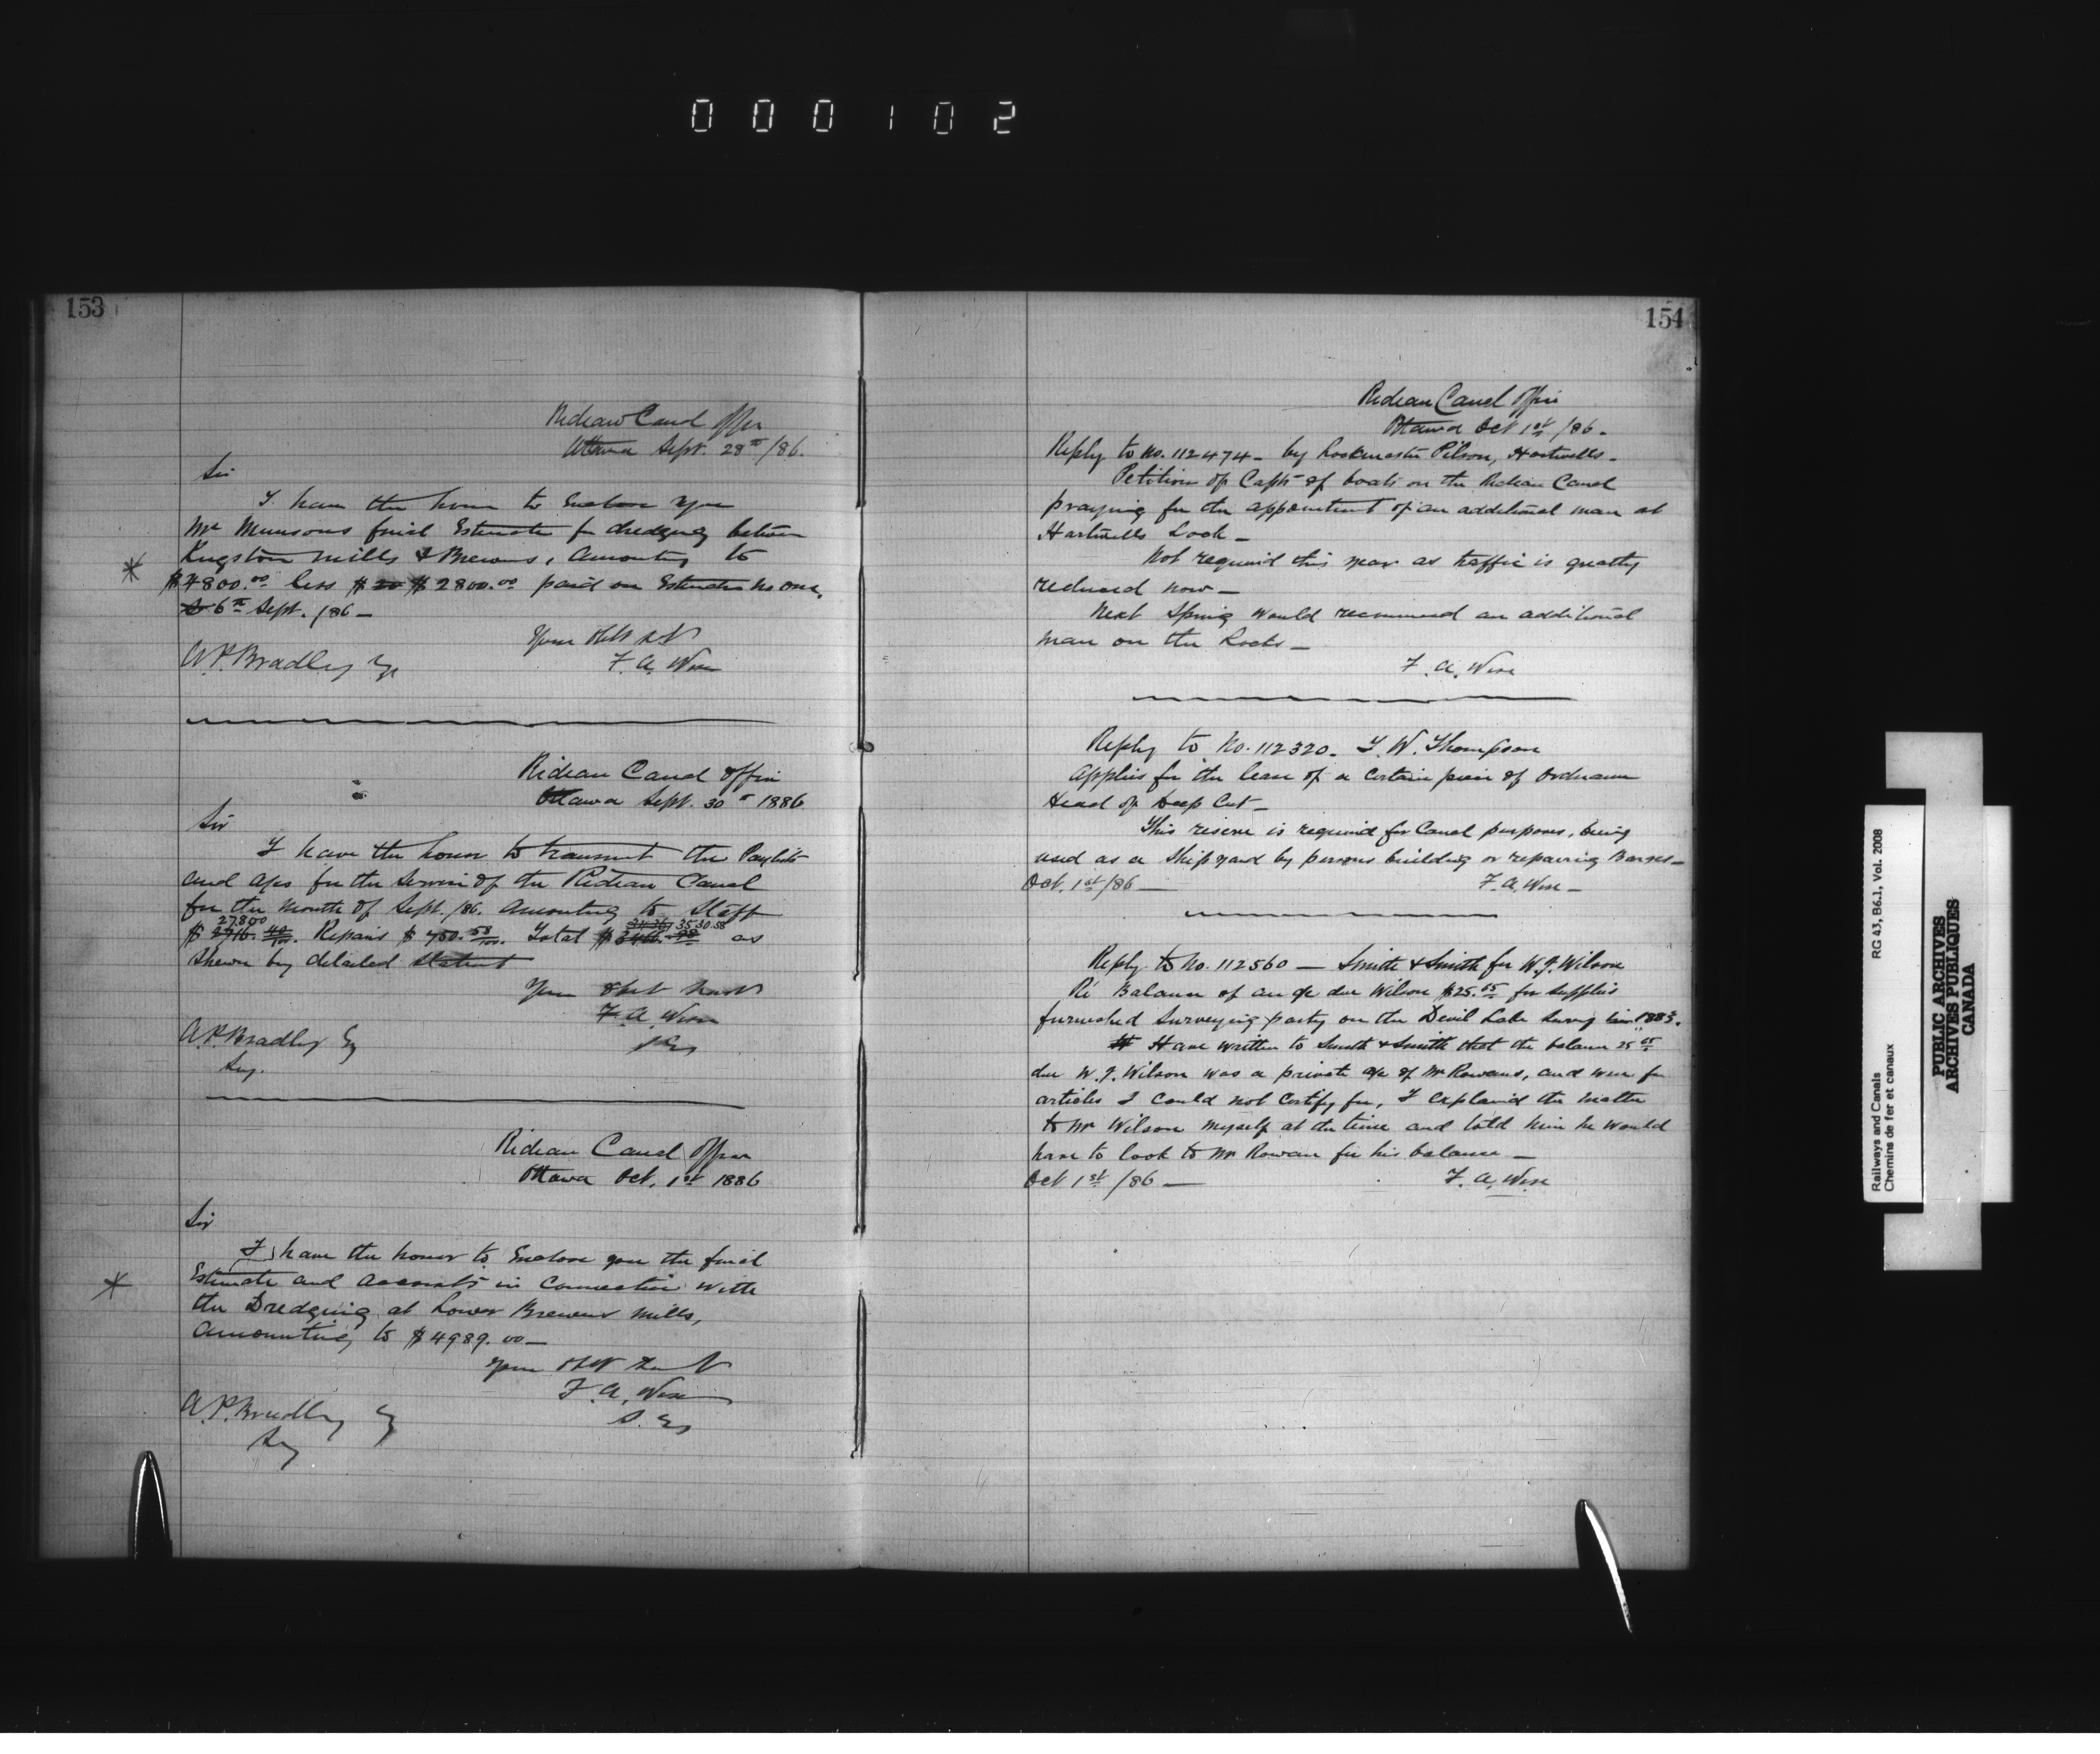 000102
153
Rideau Canal Office
Ottawa Sept. 28th /86.
Sir
I have the honor to Enclose you
Mr Munsons final Estimate for dredging between
Kingston Mills & Brewers, Amounting to
$4800.00 less $ 20 $2800.00 paid on Estimate No One,
6th Sept. /86 —
Your Obt
F. A. Wise
A. P. Bradley Esq
Rideau Canal Office
Ottawa Sept. 30th 1886
Sir
I have the honor to transmit the Paylists
and a/cs for the Service of the Rideau Canal
for the Month of Sept. /86. Amounting to Staff
2780 00 35 30.58
$ 2716. 40/100. Repairs $ 750. 58/100. Total $ as
Shewn by detailed Statement
Your Obt
F. A. Wise
A. P. Bradley Esq
Secy.
Rideau Canal Office
Ottawa Oct. 1st 1886
Sir
I have the honor to Enclose you the final
Estimate and Accounts in Connection with
the Dredging at Lower Brewers Mills,
Amounting to $4989.00 —
Your Obt
F. A. Wise
S. Eg
A. P. Bradley Esq
Secy
154
Rideau Canal Office
Ottawa Oct 1st /86.
Reply to No. 112474 — by Lockmaster Pilson, Hartwells —
Petition of Capts of boats on the Rideau Canal
praying for the appointment of an additional man at
Hartwells Lock —
Not required this year as traffic is greatly
reduced now —
Next Spring would recommend an additional
man on the Locks —
F. A. Wise
Reply to No. 112320 — T. W. Thompson
Applies for the lease of a certain piece of Ordnance
Head of Deep Cut —
This reserve is required for Canal purposes, being
used as a Ship yard by persons building or repairing Barges —
Oct. 1st /86 — F. A. Wise —
Reply to No. 112560 — Smith & Smith for W. J. Wilson
Re Balance of an a/c due Wilson $25.05 for supplies
furnished Surveying party on the Devil Lake Survey in 1883.
Have written to Smith & Smith that the balance 25 05
due W. J. Wilson was a private a/c of Mr Rowans, and were for
articles I could not Certify for, I explained the matter
to Mr Wilson myself at the time and told him he would
have to look to Mr Rowan for his balance —
Oct 1st /86 — F. A. Wise
Railways and Canals RG 43, B6.1, Vol. 2008
Chemins de fer et canaux
PUBLIC ARCHIVES
ARCHIVES PUBLIQUES
CANADA